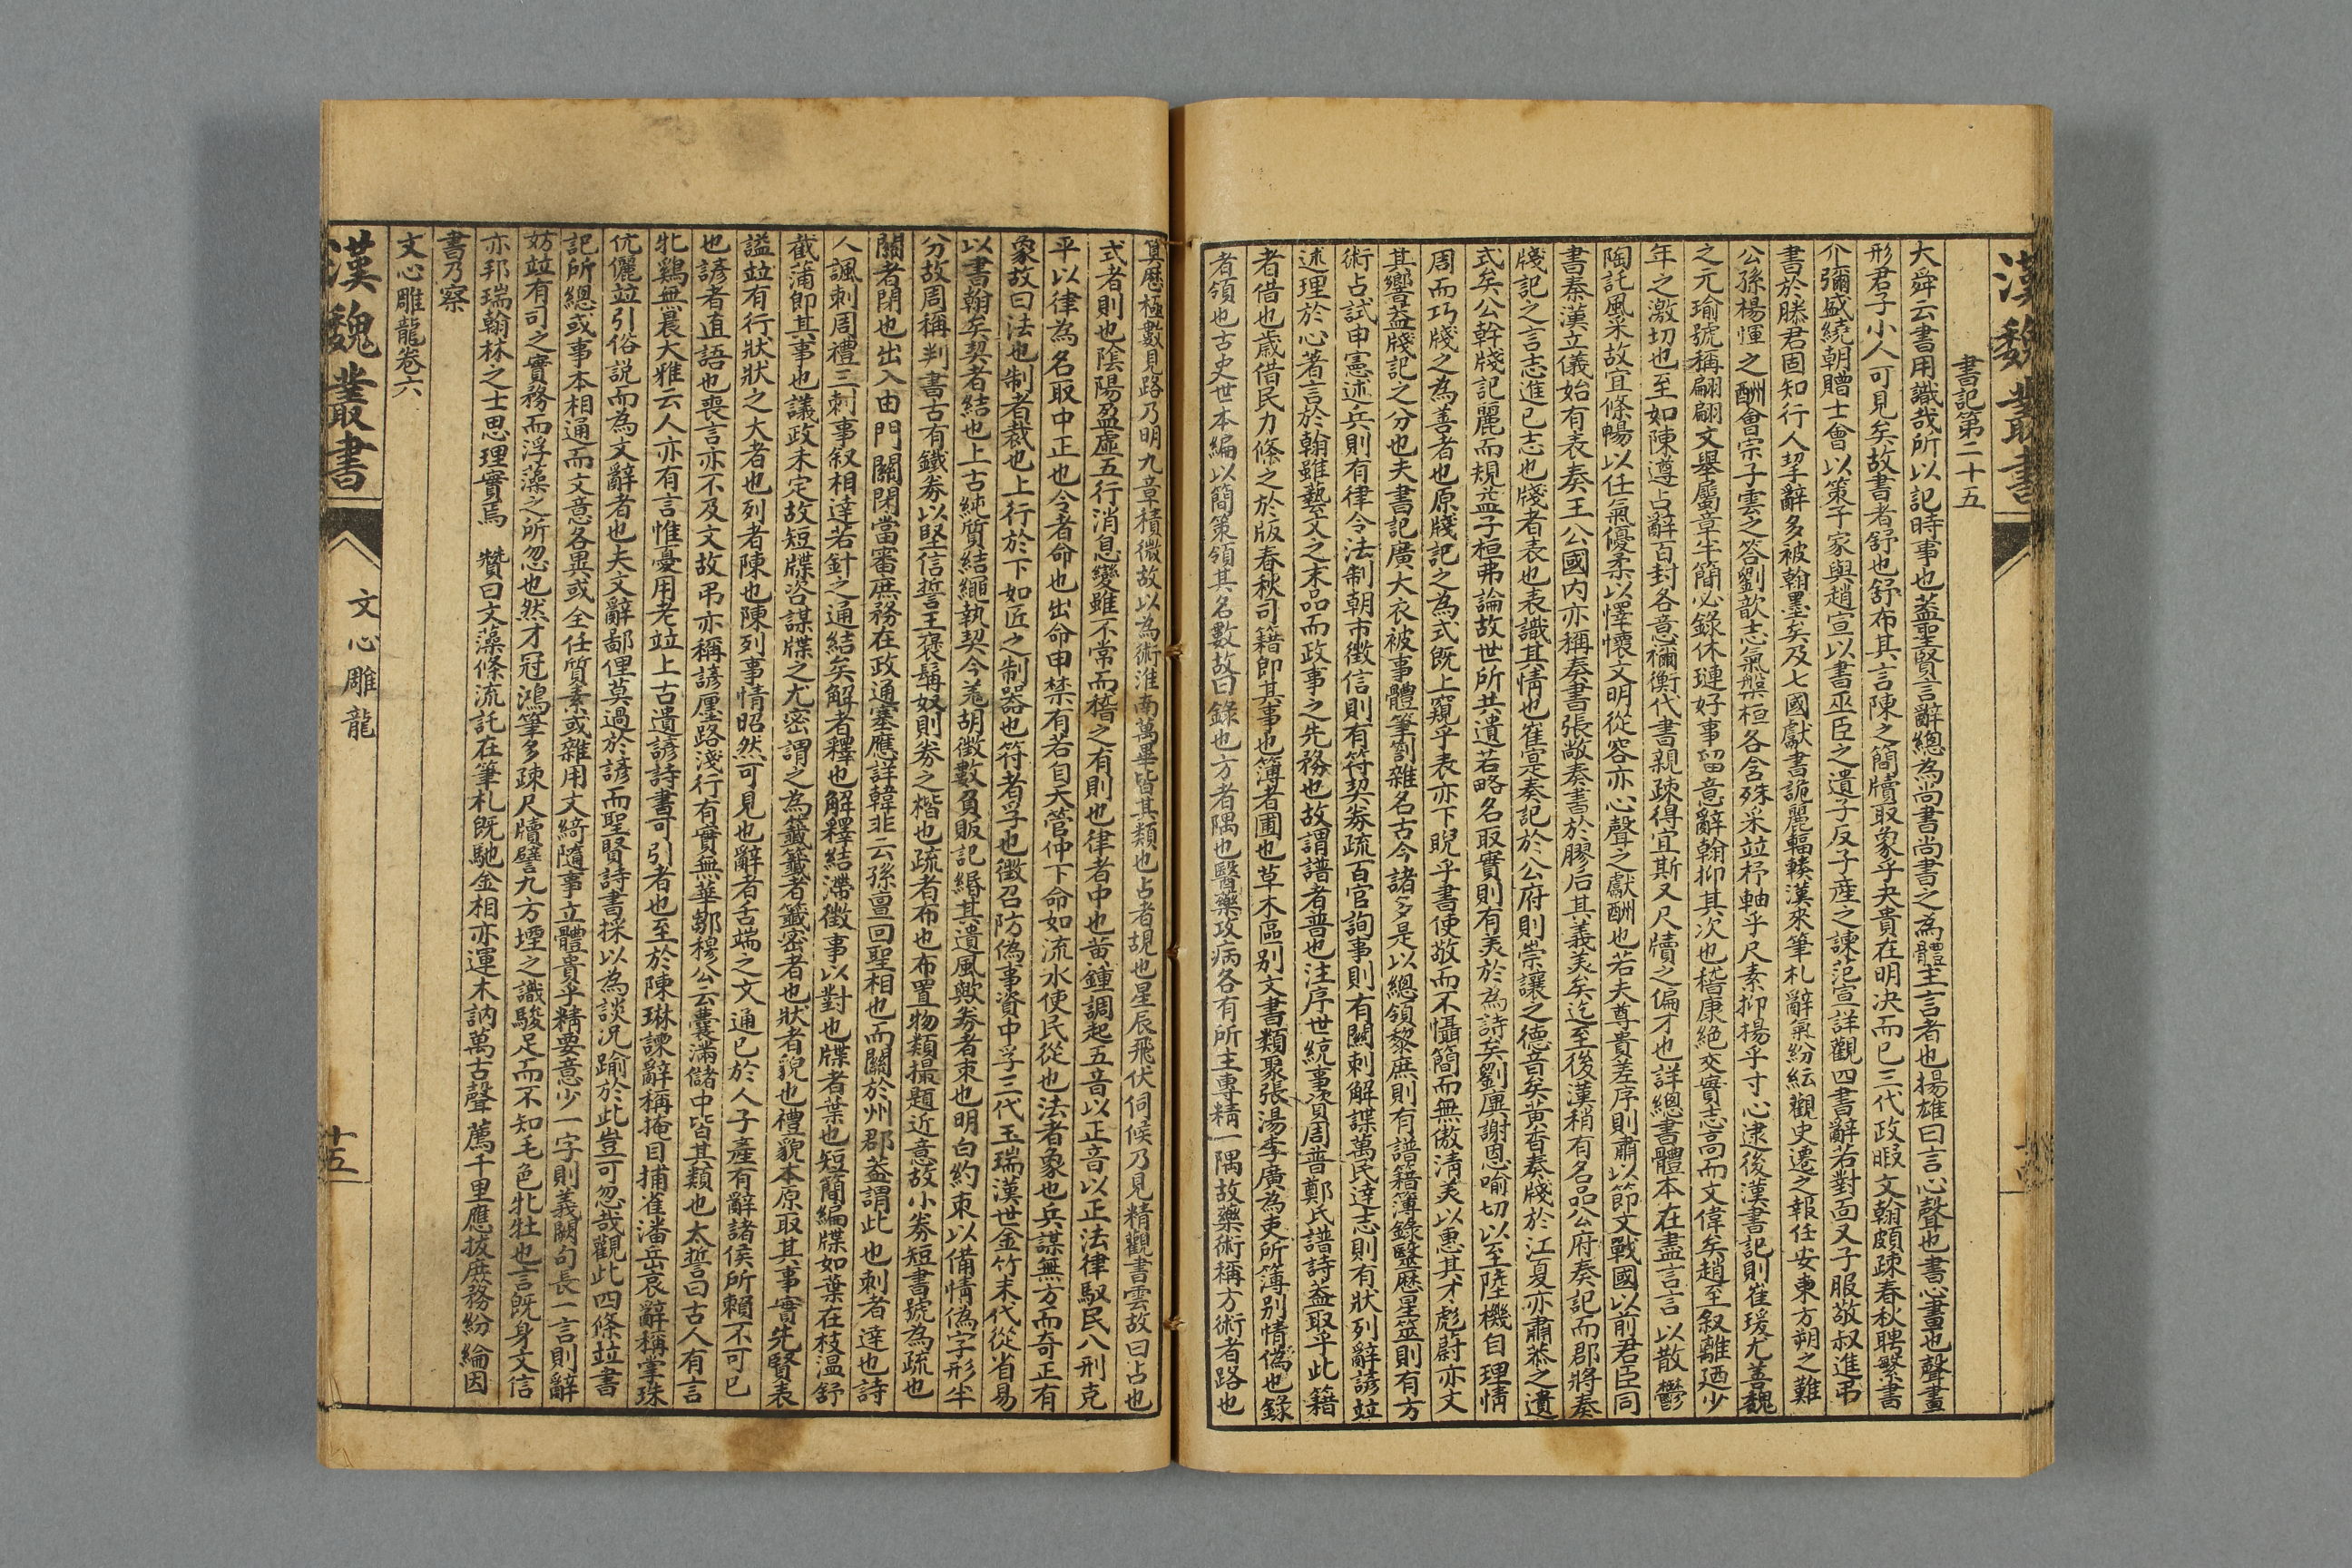 漢魏叢書
書記第二十五
大舜云書用識哉所以記時事也葢聖賢言辭總為尚書尚書之為體主言者也揚雄曰言心聲也書心畫也聲畫
形君子小人可見矣故書者舒也舒布其言陳之簡牘取象乎夬貴在明決而已三代政暇文翰頗疎春秋聘繁書
介彌盛繞朝贈士會以策子家與趙宣以書巫臣之遺子反子產之諫范宣詳觀四書辭若對面又子服敬叔進弔
書於滕君固知行人挈辭多被翰墨矣及七國獻書詭麗輻輳漢來筆札辭氣紛紜觀史遷之報任安東方朔之難
公孫楊惲之酬會宗子雲之答劉歆志氣槃桓各含殊采並杼軸乎尺素抑揚乎寸心逮後漢書記則崔瑗尤善魏
之元瑜號稱翩翩文舉屬章半簡必錄休璉好事留意辭翰抑其次也嵇康絕交實志高而文偉矣趙至叙離廼少
年之激切也至如陳遵占辭百封各意禰衡代書親疎得宜斯又尺牘之偏才也詳總書體本在盡言言以散鬱
陶託風采故宜條暢以任氣優柔以懌懷文明從容亦心聲之獻酬也若夫尊貴差序則肅以節文戰國以前君臣同
書秦漢立儀始有表奏王公國内亦稱奏書張敞奏書於膠后其義美矣迄至後漢稍有名品公府奏記而郡將奏
牋記之言志進己志也牋者表也表識其情也崔寔奏記於公府則崇讓之德音矣黃香奏牋於江夏亦肅恭之遺
式矣公幹牋記麗而規益子桓弗論故世所共遺若略名取實則有美於為詩矣劉廙謝恩喻切以至陸機自理情
周而巧牋之為善者也原牋記之為式既上窺乎表亦下睨乎書使敬而不懾簡而無傲清美以惠其才彪蔚亦文
其響葢牋記之分也夫書記廣大衣被事體筆劄雜名古今諸多是以總領黎庶則有譜籍簿錄醫歷星筮則有方
術占試申憲述兵則有律令法制朝市徵信則有符契券疏百官詢事則有關刺解諜萬民達志則有狀列辭諺並
述理於心著言於翰雖藝文之末品而政事之先務也故謂譜者普也注序世統事資周普鄭氏譜詩葢取乎此籍
者借也歲借民力條之於版春秋司籍即其事也簿者圃也草木區别文書類聚張湯李廣為吏所簿别情偽也錄
者領也古史世本編以簡策領其名數故曰錄也方者隅也醫藥攻病各有所主專精一隅故藥術稱方術者路也
筭歷極數見路乃明九章積微故以為術淮南萬畢皆其類也占者覘也星辰飛伏伺候乃見精觀書雲故曰占也
式者則也陰陽盈虛五行消息變雖不常而稽之有則也律者中也黃鍾調起五音以正音以正法律馭民八刑克
平以律為名取中正也令者命也出命申禁有若自天管仲下命如流水使民從也法者象也兵謀無方而奇正有
象故曰法也制者裁也上行於下如匠之制器也符者孚也徵召防偽事資中孚三代玉瑞漢世金竹末代從省易
以書翰矣契者結也上古純質結繩執契今羌胡徵數負販記緡其遺風歟券者束也明白約束以備情偽字形半
分故周稱判書古有鐵券以堅信誓王褒髯奴則券之楷也疏者布也布置物類撮題近意故小券短書號為疏也
關者閉也出入由門關閉當審庶務在政通塞應詳韓非云孫亶回聖相也而關於州郡葢謂此也刺者達也詩
人諷刺周禮三刺事叙相達若針之通結矣解者釋也解釋結滯徵事以對也牒者葉也短簡編牒如葉在枝温舒
截蒲即其事也議政未定故短牒咨謀牒之尤密謂之為籤籤者籤密者也狀者貌也禮貌本原取其事實先賢表
謚並有行狀狀之大者也列者陳也陳列事情昭然可見也辭者舌端之文通已於人子產有辭諸侯所賴不可已
也諺者直語也喪言亦不及文故弔亦稱諺廛路淺行有實無華鄒穆公云囊滿儲中皆其類也太誓曰古人有言
牝鷄無晨大雅云人亦有言惟憂用老並上古遺諺詩書可引者也至於陳琳諫辭稱掩目捕雀潘岳哀辭稱掌珠
伉儷並引俗說而為文辭者也夫文辭鄙俚莫過於諺而聖賢詩書採以為談况踰於此豈可忽哉觀此四條並書
記所總或事本相通而文意各異或全任質素或雜用文綺隨事立體貴乎精要意少一字則義闕句長一言則辭
妨並有司之實務而浮藻之所忽也然才冠鴻筆多疎尺牘譬九方堙之識駿足而不知毛色牝牡也言既身文信
亦邦瑞翰林之士思理實焉　贊曰文藻條流託在筆札既馳金相亦運木訥萬古聲薦千里應拔庶務紛綸因
書乃察
文心雕龍卷六
漢魏叢書
文心雕龍
十五